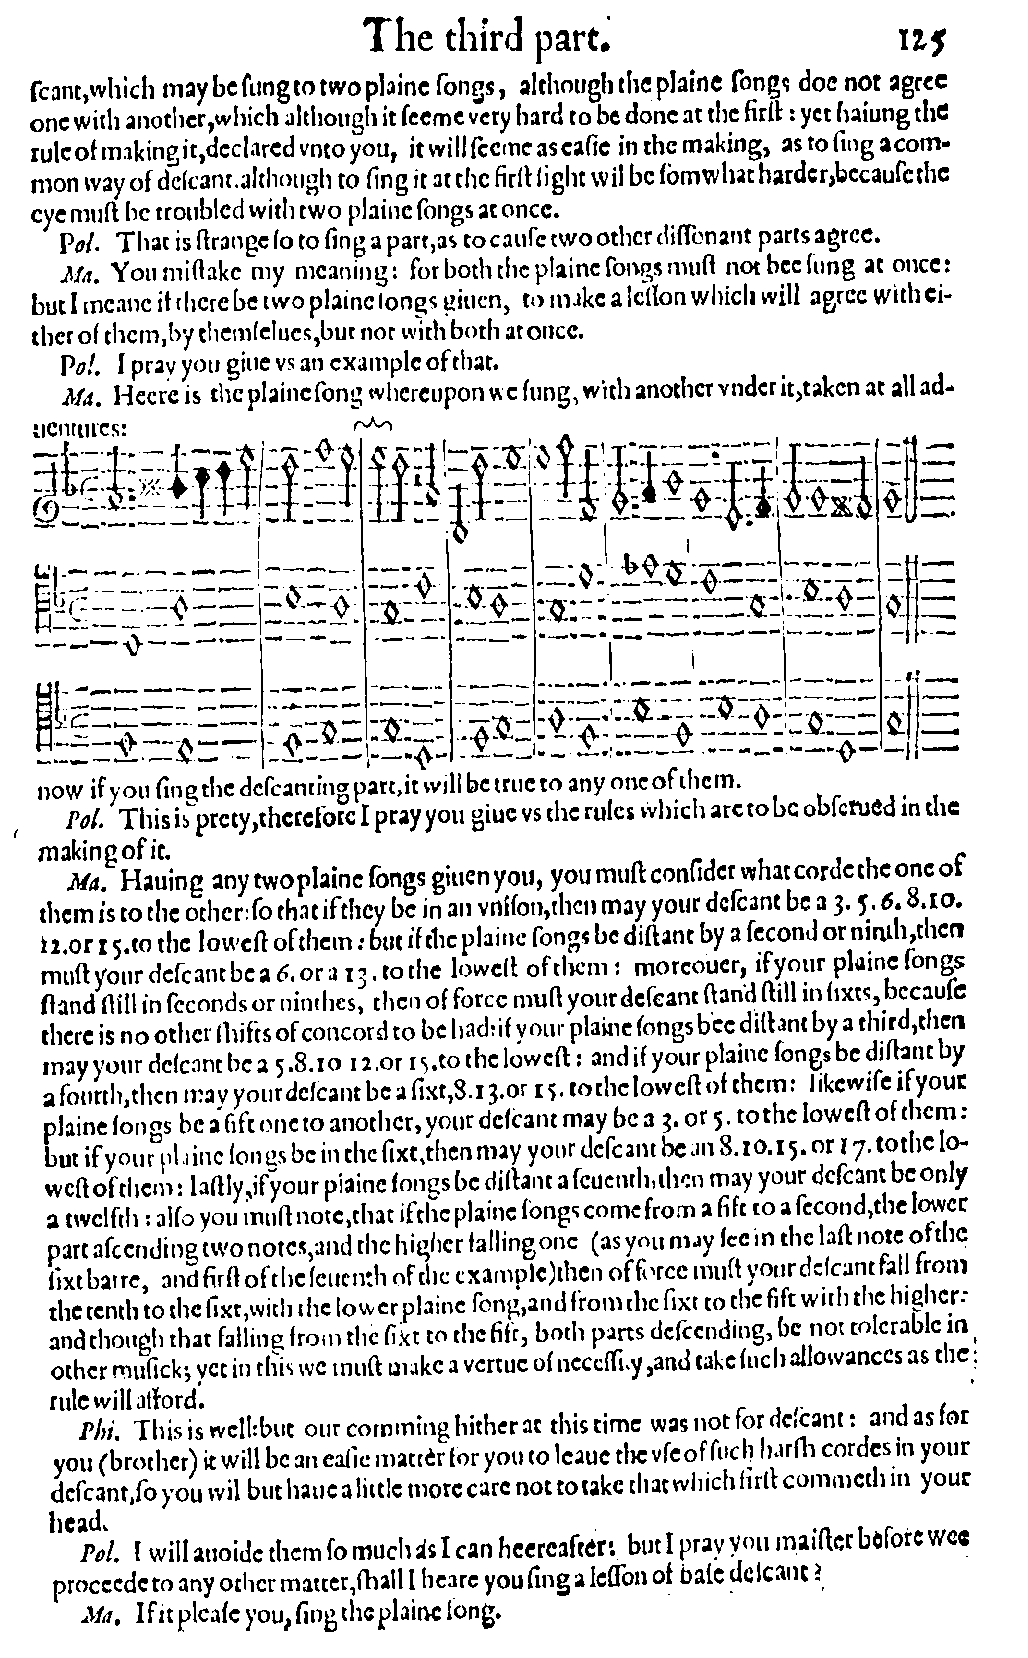 The third part. 125
ſcant,which may be ſung to two plaine ſongs, although the plaine ſongs doe not agree
one with another,which although it ſeeme very hard to be done at the firſt : yet hauing the
rule of making it,declared vnto you, it will ſeeme as eaſie in the making, as to ſing a com-
mon way of deſcant.although to ſing it at the firſt ſight wil be ſomwhat harder,becauſe the
eye muſt be troubled with two plaine ſongs at once.
Pol. That is ſtrange ſo to ſing a part,as to cauſe two other diſſonant parts agree.
Ma. You miſtake my meaning: for both the plaine ſongs muſt not bee ſung at once:
but I meane if there be two plaine ſongs giuen, to make a leſſon which will agree with ei-
ther of them,by themſelues,but not with both at once.
Pol. I pray you giue vs an example of that.
Ma. Heere is the plaine ſong whereupon we ſung, with another vnder it,taken at all ad-
uentures:
now if you ſing the deſcanting part,it will be true to any one of them.
Pol. This is prety,therefore I pray you giue vs the rules which are to be obſerued in the
making of it.
Ma. Hauing any two plaine ſongs giuen you, you muſt conſider what corde the one of
them is to the other:ſo that if they be in an vniſon,then may your deſcant be a 3. 5. 6. 8. 10.
12.or 15.to the loweſt of them : but if the plaine ſongs be diſtant by a ſecond or ninth,then
muſt your deſcant be a 6. or a 13. to the loweſt of them : moreouer, if your plaine ſongs
ſtand ſtill in ſeconds or ninthes, then of force muſt your deſcant ſtand ſtill in ſixts, becauſe
there is no other ſhifts of concord to be had:if your plaine ſongs bee diſtant by a third,then
may your deſcant be a 5.8.10 12.or 15.to the loweſt : and if your plaine ſongs be diſtant by
a fourth,then may your deſcant be a ſixt,8.13.or 15. to the loweſt of them: likewiſe if your
plaine ſongs be a fift one to another, your deſcant may be a 3. or 5. to the loweſt of them:
but if your plaine ſongs be in the ſixt,then may your deſcant be an 8.10.15. or 17. to the lo-
weſt of them: laſtly,if your plaine ſongs be diſtant a ſeuenth,then may your deſcant be only
a twelfth : alſo you muſt note,that if the plaine ſongs come from a fift to a ſecond,the lower
part aſcending two notes,and the higher falling one (as you may ſee in the laſt note of the
ſixt barre, and firſt of the ſeuenth of the example)then of force muſt your deſcant fall from
the tenth to the ſixt,with the lower plaine ſong,and from the ſixt to the fift with the higher:
and though that falling from the ſixt to the fift, both parts deſcending, be not tolerable in
other muſick; yet in this we muſt make a vertue of neceſſity,and take ſuch allowances as the
rule will afford.
Phi. This is well:but our comming hither at this time was not for deſcant : and as for
you (brother) it will be an eaſie matter for you to leaue the vſe of ſuch harſh cordes in your
deſcant,ſo you wil but haue a little more care not to take that which firſt commeth in your
head.
Pol. I will auoide them ſo much as I can heereafter: but I pray you maiſter before wee
proceede to any other matter,ſhall I heare you ſing a leſſon of baſe deſcant ?
Ma. If it pleaſe you, ſing the plaine ſong.